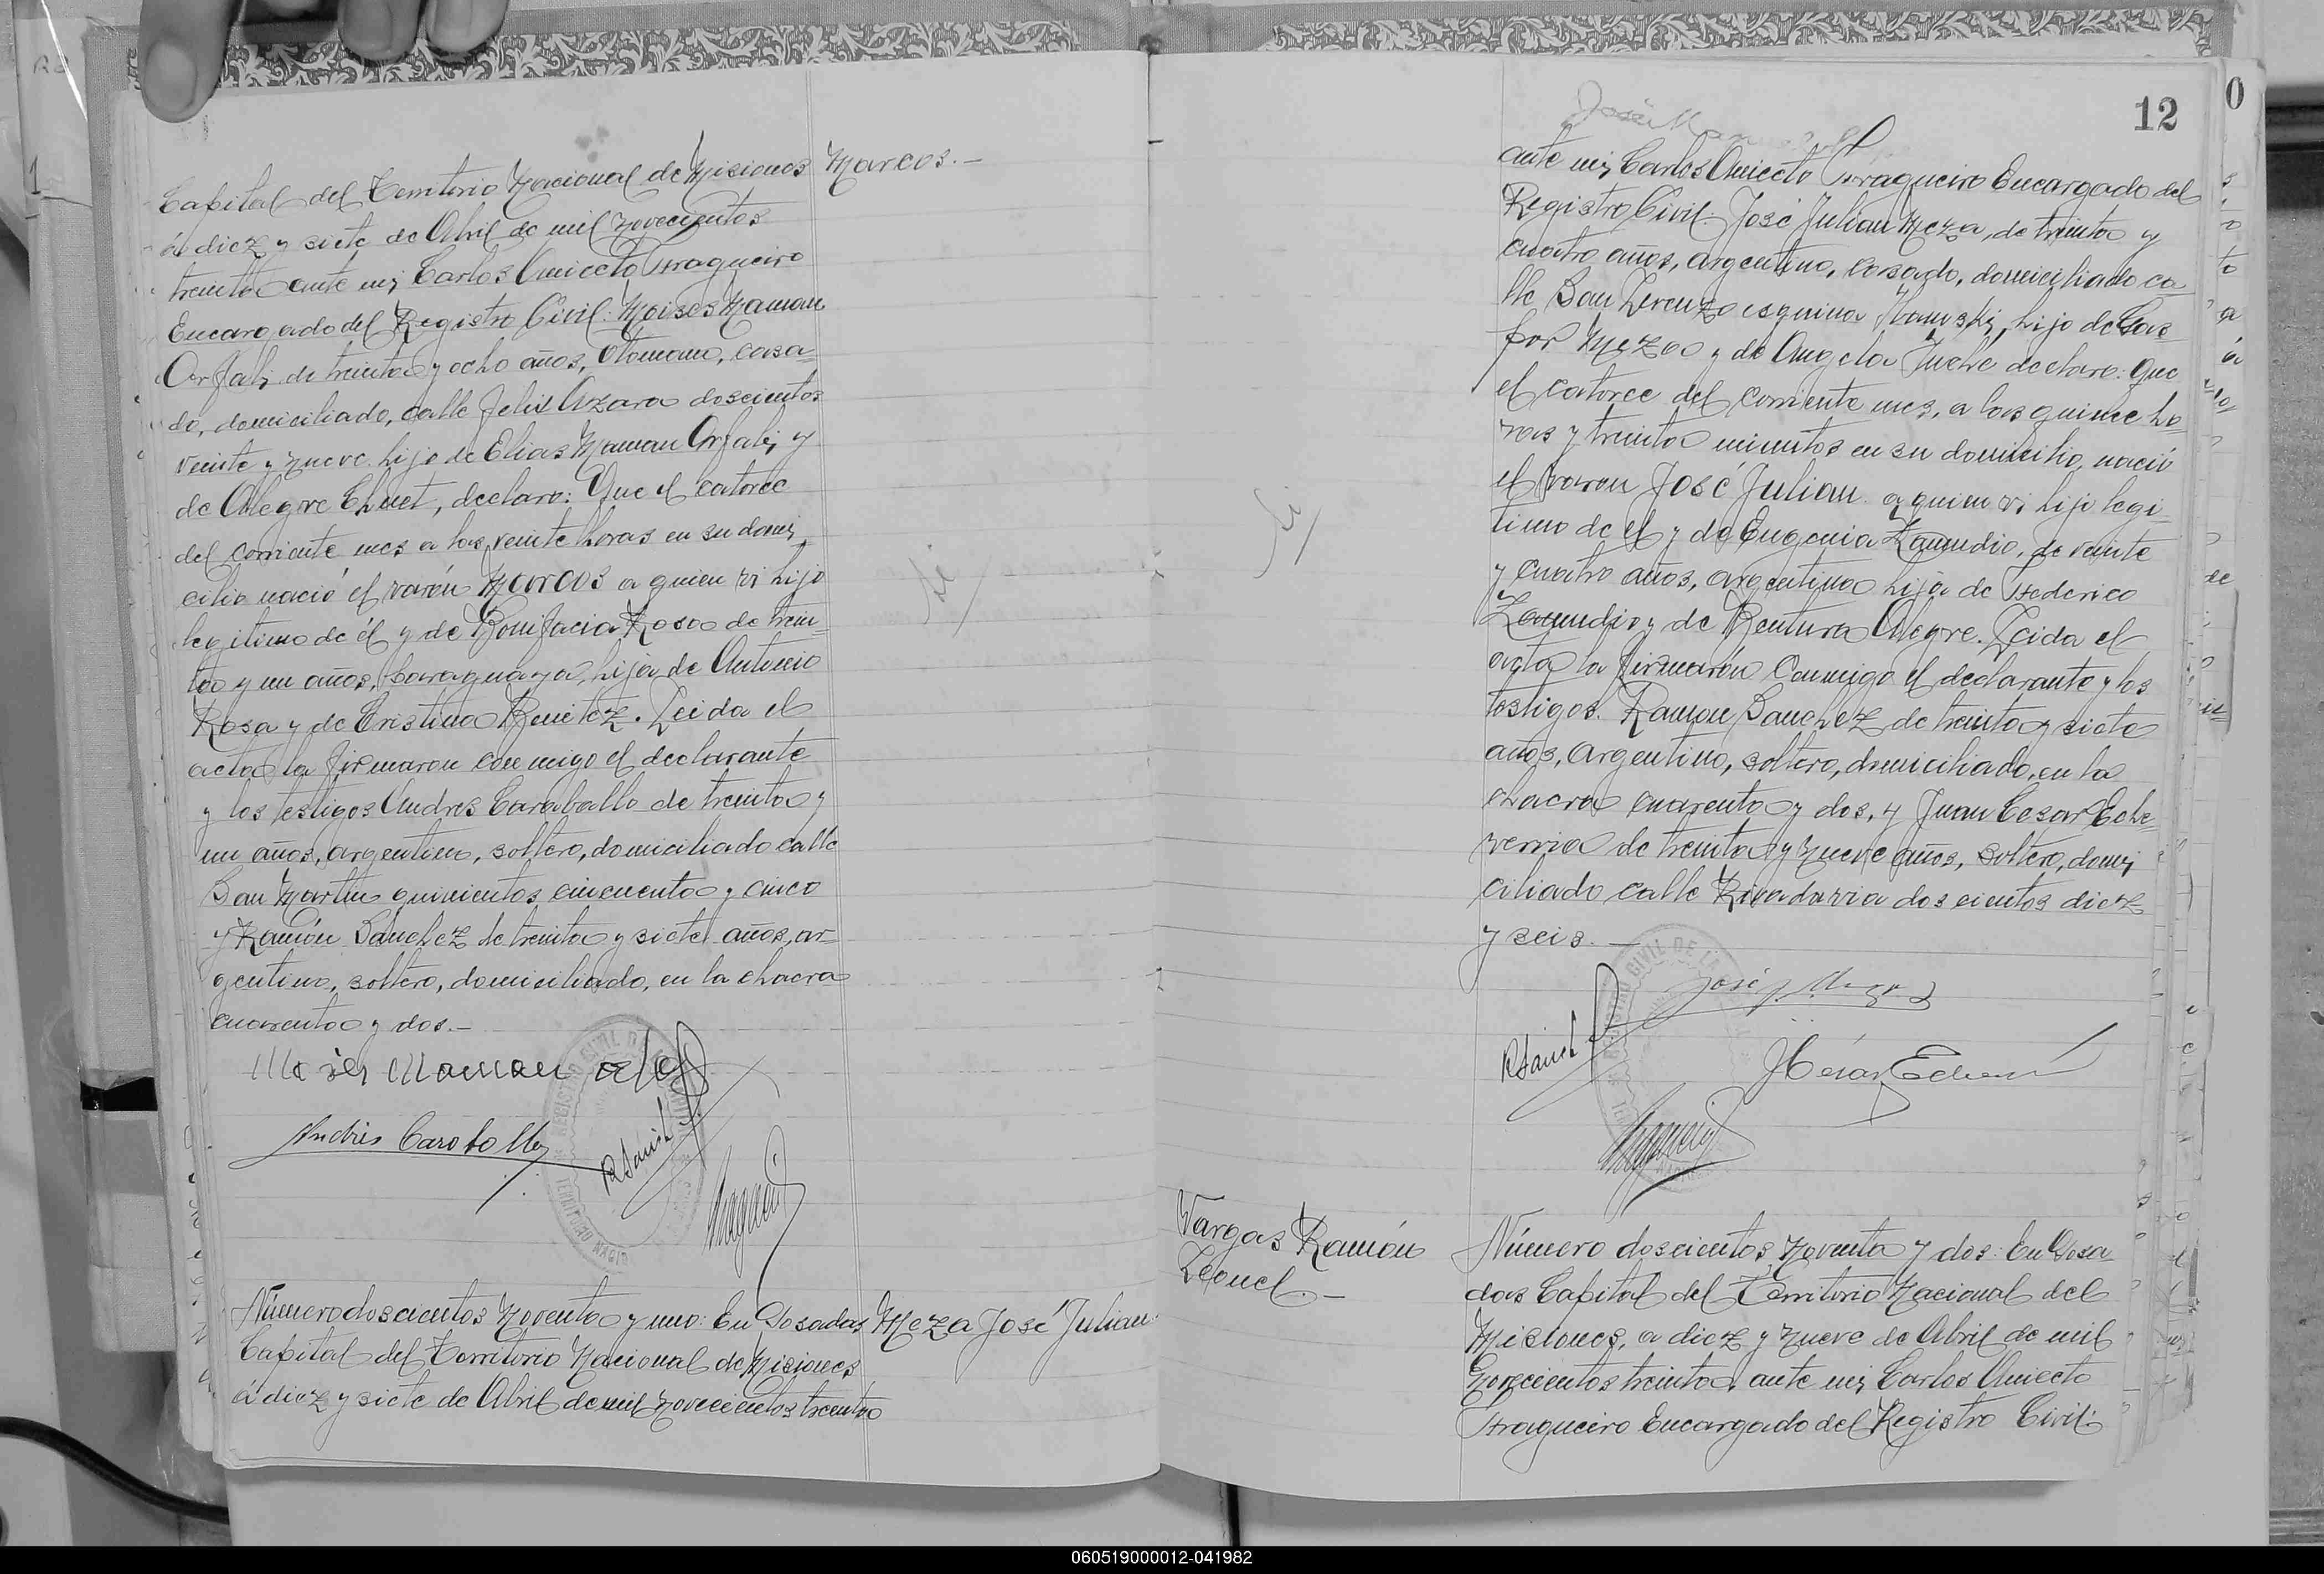 Marcos.—
Capital del Territorio Nacional de Misiones
á diez y siete de Abril de mil novecientos
treinta ante mi Carlos Aniceto Fragueiro
Encargado del Registro Civil: Moises Maman
Orfali de treinta y ocho años, Otomano, casa=
do, domiciliado, calle Felix Azara doscientos
veinte y nueve hijo de Elias Maman Orfali y
de Alegre Ehuet, declaro: Que el catorce
del corriente mes a las veinte horas en su domi
cilio nació el varón Marcos a quien vi hijo
legitimo de él y de Bonifacia Rosa de trein=
ta y un años, paraguaya, hija de Antonio
Rosa y de Cristina Benitez. Leida el
acta la firmaron conmigo el declarante
y los testigos Andres Caraballo de treinta y
un años, argentino, soltero, domiciliado calle
San Martin quinientos cincuenta y cinco
y Ramón Sanchez de treinta y siete años, ar=
gentino, soltero, domiciliado, en la chacra
cuarenta y dos.—
Moises Maman
Andrés Caraballo
RSanchez
Fragueiro
REGISTRO CIVIL DE
TERRITORIO NACIO
Meza José Julian
Número doscientos noventa y uno: En Posadas
Capital del Territorio Nacional de Misiones
á diez y siete de Abril de mil novecientos treinta
12
0
José Ma
ante mi Carlos Aniceto Fragueiro Encargado del
Registro Civil: José Julian Meza, de treinta y
cuatro años, argentino, casado, domiciliado ca
lle San Lorenzo esquina hijo de Gas
par Meza y de Angela declaro: Que
el catorce del corriente mes, a las quince ho
ras y treinta minutos en su domicilio, nació
el varon José Julian a quien vi hijo legi
timo de el y de Eugenia Zamudio, de veinte
y cuatro años, argentina hija de Federico
Zamudio y de Bentura Alegre. Leida el
acta la firmarón conmigo el declarante y los
testigos. Ramon Sanchez de treinta y siete
años, argentino, soltero, domiciliado, en la
chacra cuarenta y dos, y Juan Cesar Eche
verria de treinta y nueve años, soltero, domi
ciliado calle Rivadavia dos cientos diez
y seis.—
José J. Meza
RSanchez
JCésar Echeverría
Fragueiro
CIVIL DE LA
Vargas Ramón
Leonel.—
Número doscientos noventa y dos: En Posa
das Capital del Territorio Nacional del
Misiones, a diez y nueve de Abril de mil
novecientos treinta, ante mi Carlos Aniceto
Fragueiro Encargado del Registro Civil:
060519000012-041982